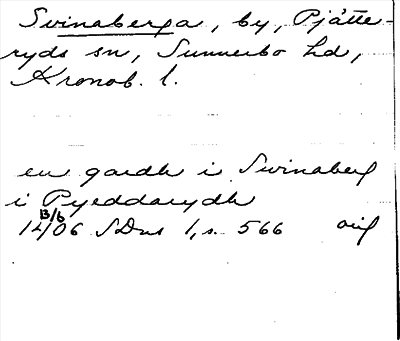 Svinaberga, by, Pjätte-
ryds sn, Sunnerbo hd,
Kronob. l.
en gardh i Swinaberg
i Pyeddarydh
13/6
1406 SDns 1, s. 566 avs